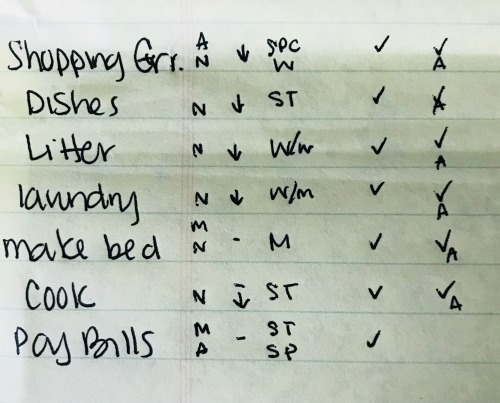 Shopping Grr. A N ↓ SPC W ✓ ✓ A
Dishes N ↓ ST ✓ ✓ A
Litter N ↓ W/W ✓ ✓ A
laundry N ↓ W/M ✓ ✓ A
make bed M N - M ✓ ✓ A
Cook N - ↓ ST ✓ ✓ A
Pay Bills M A - ST SP ✓